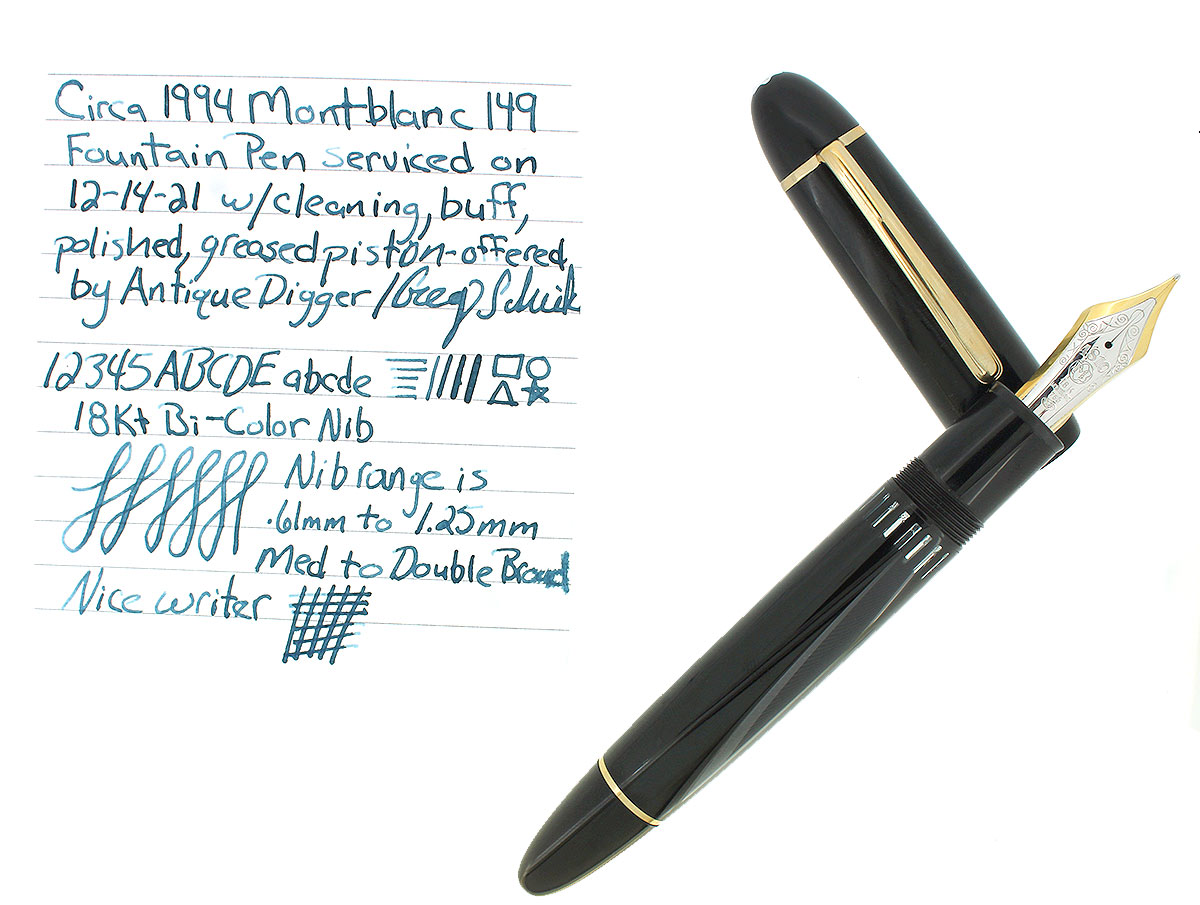 Circa 1994 Montblanc 149
Fountain Pen serviced on
12-14-21 w/cleaning, buff,
polished, greased piston-offered
by Antique Digger /Greg
12345 ABCDE abcde
18Kt Bi-Color Nib
Nib range is
.61mm to 1.25mm
Med to Double Broad
Nice writer